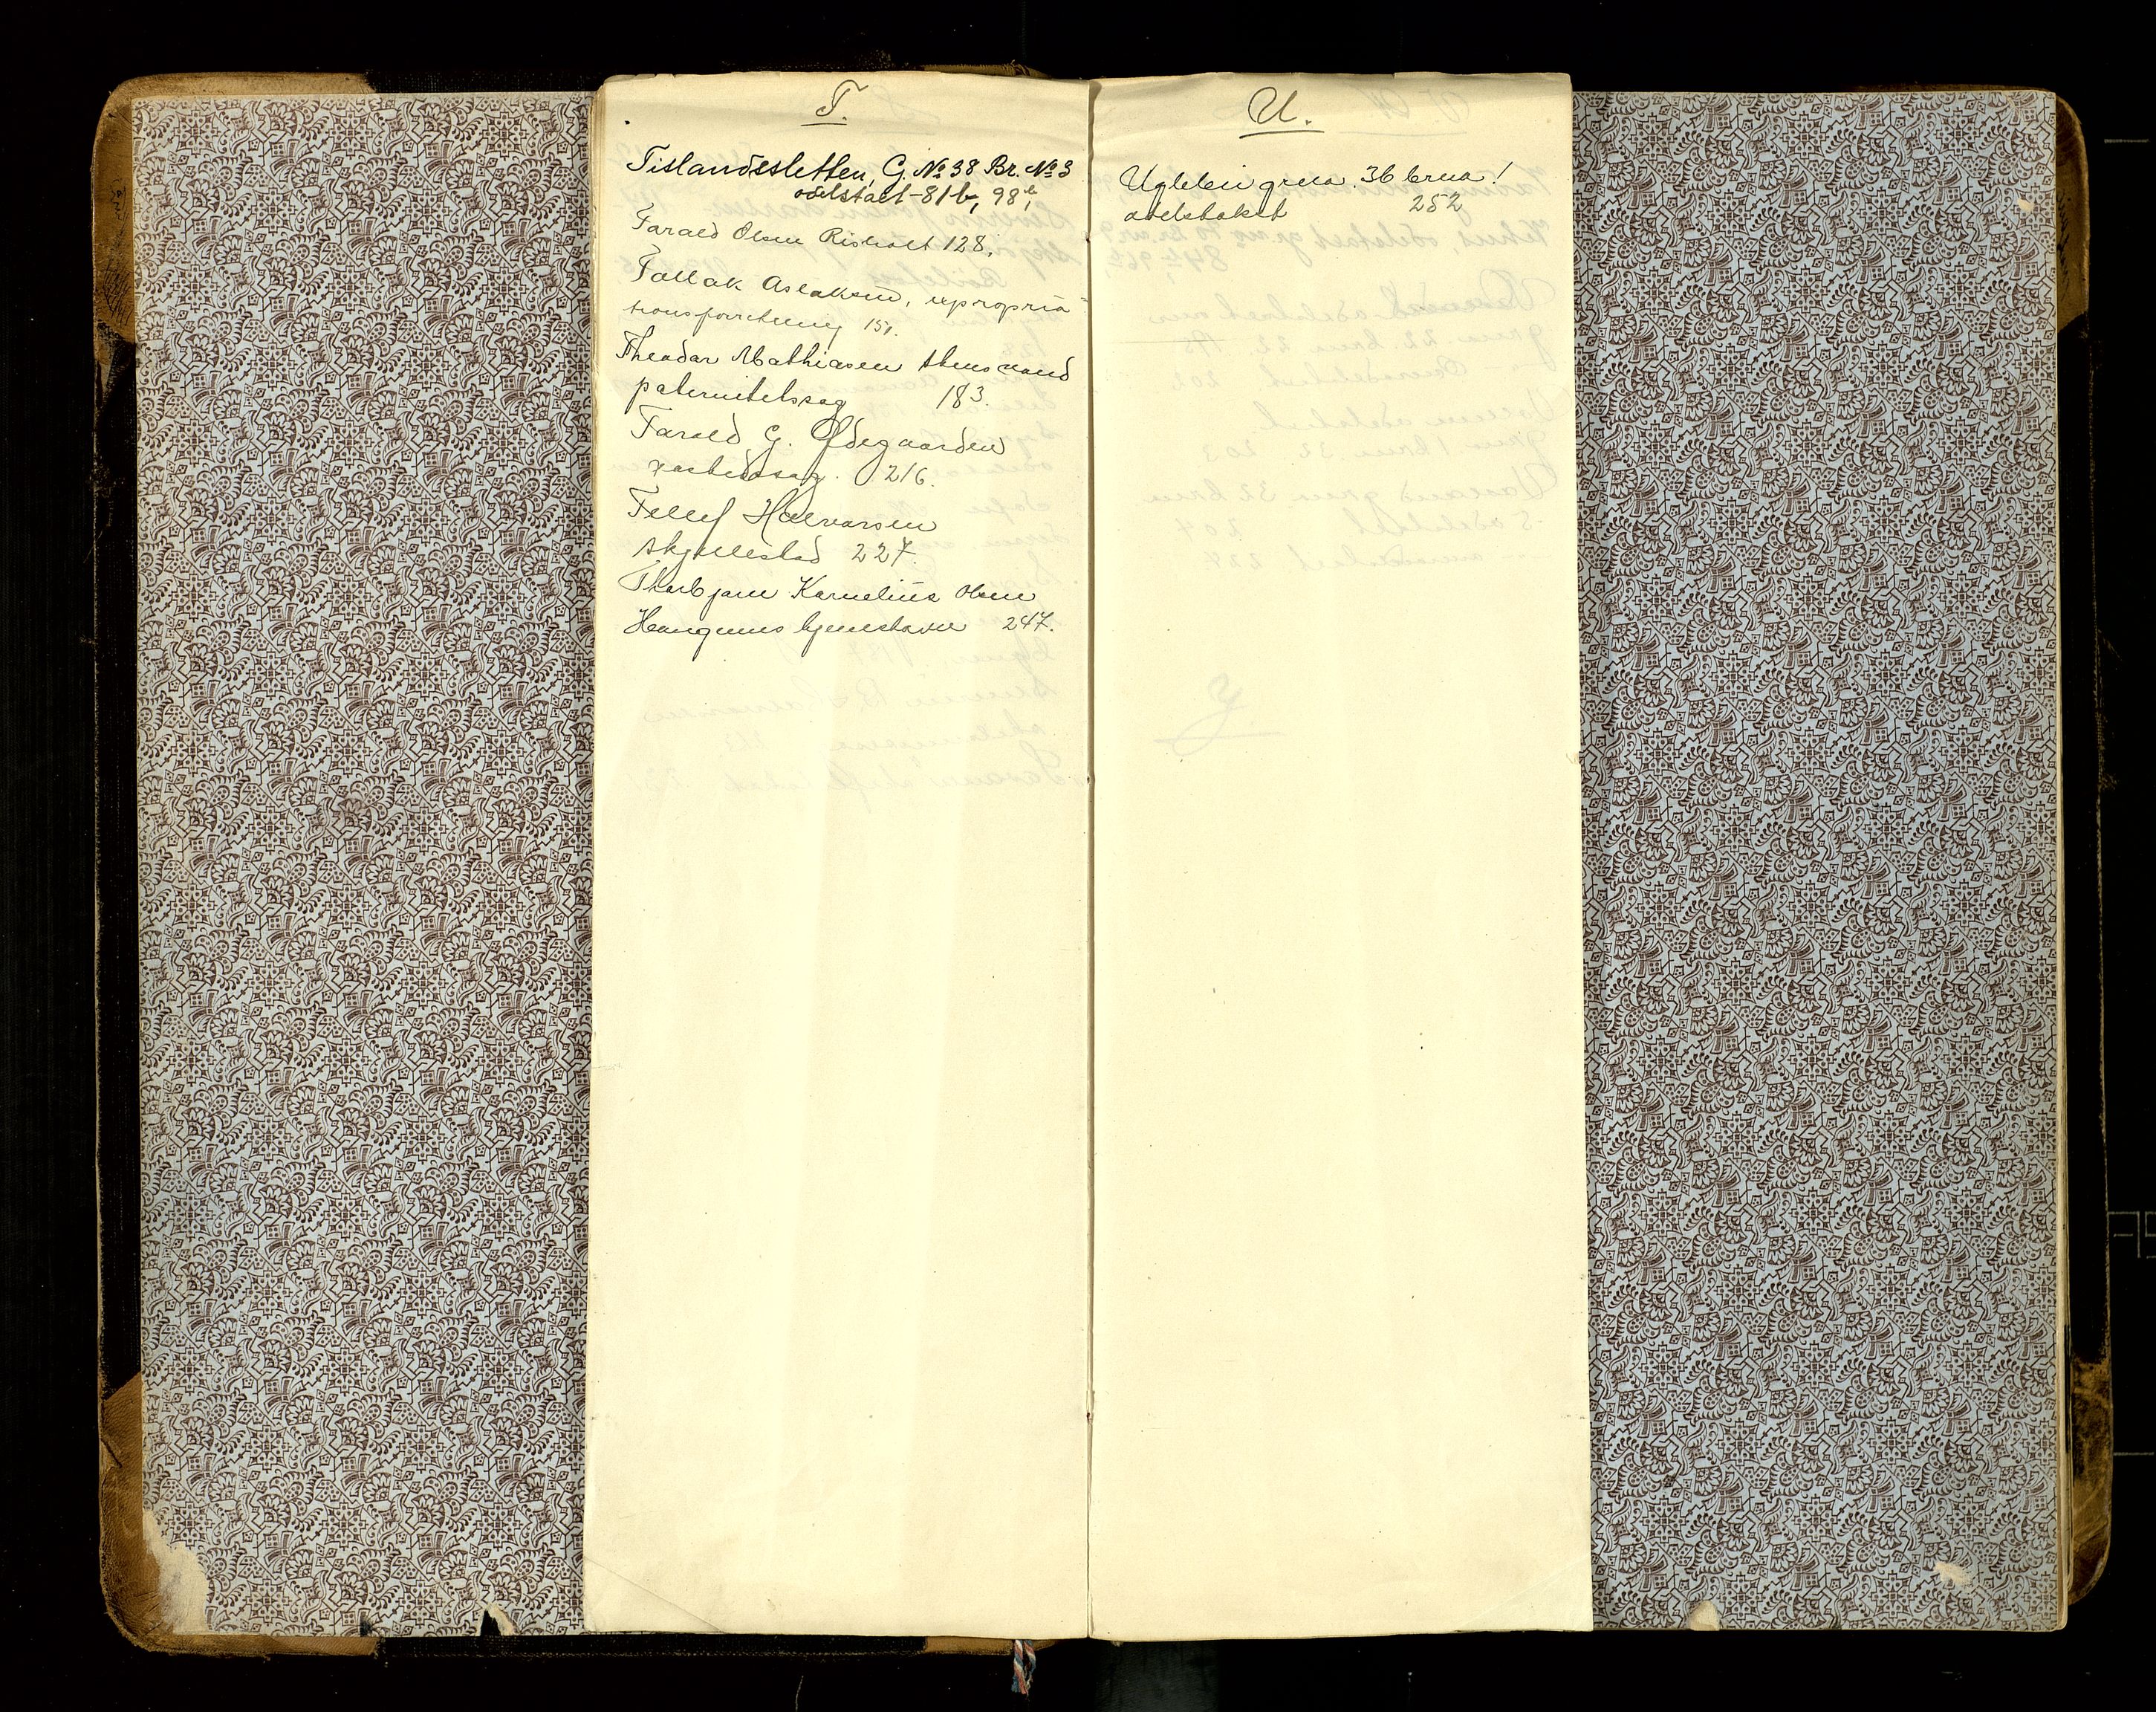 T.
Tislandssletten, G. № 38 Br. № 3
odelstaxt 81b, 98b,
Tarald Olsen Risholt 128.
Tallak Aslaksen, expropria
tionsforretning 151.
Theodor Mathiasen Stensvand
paternitetssag 183.
Tarald G. Ødegaarden
vastedssag. 216.
Tellef Halvorsen
Skjullestad 227.
Thorbjørn Kornelius Olsen
247.
U.
grno. 36 brno. 1
odelstakst 252